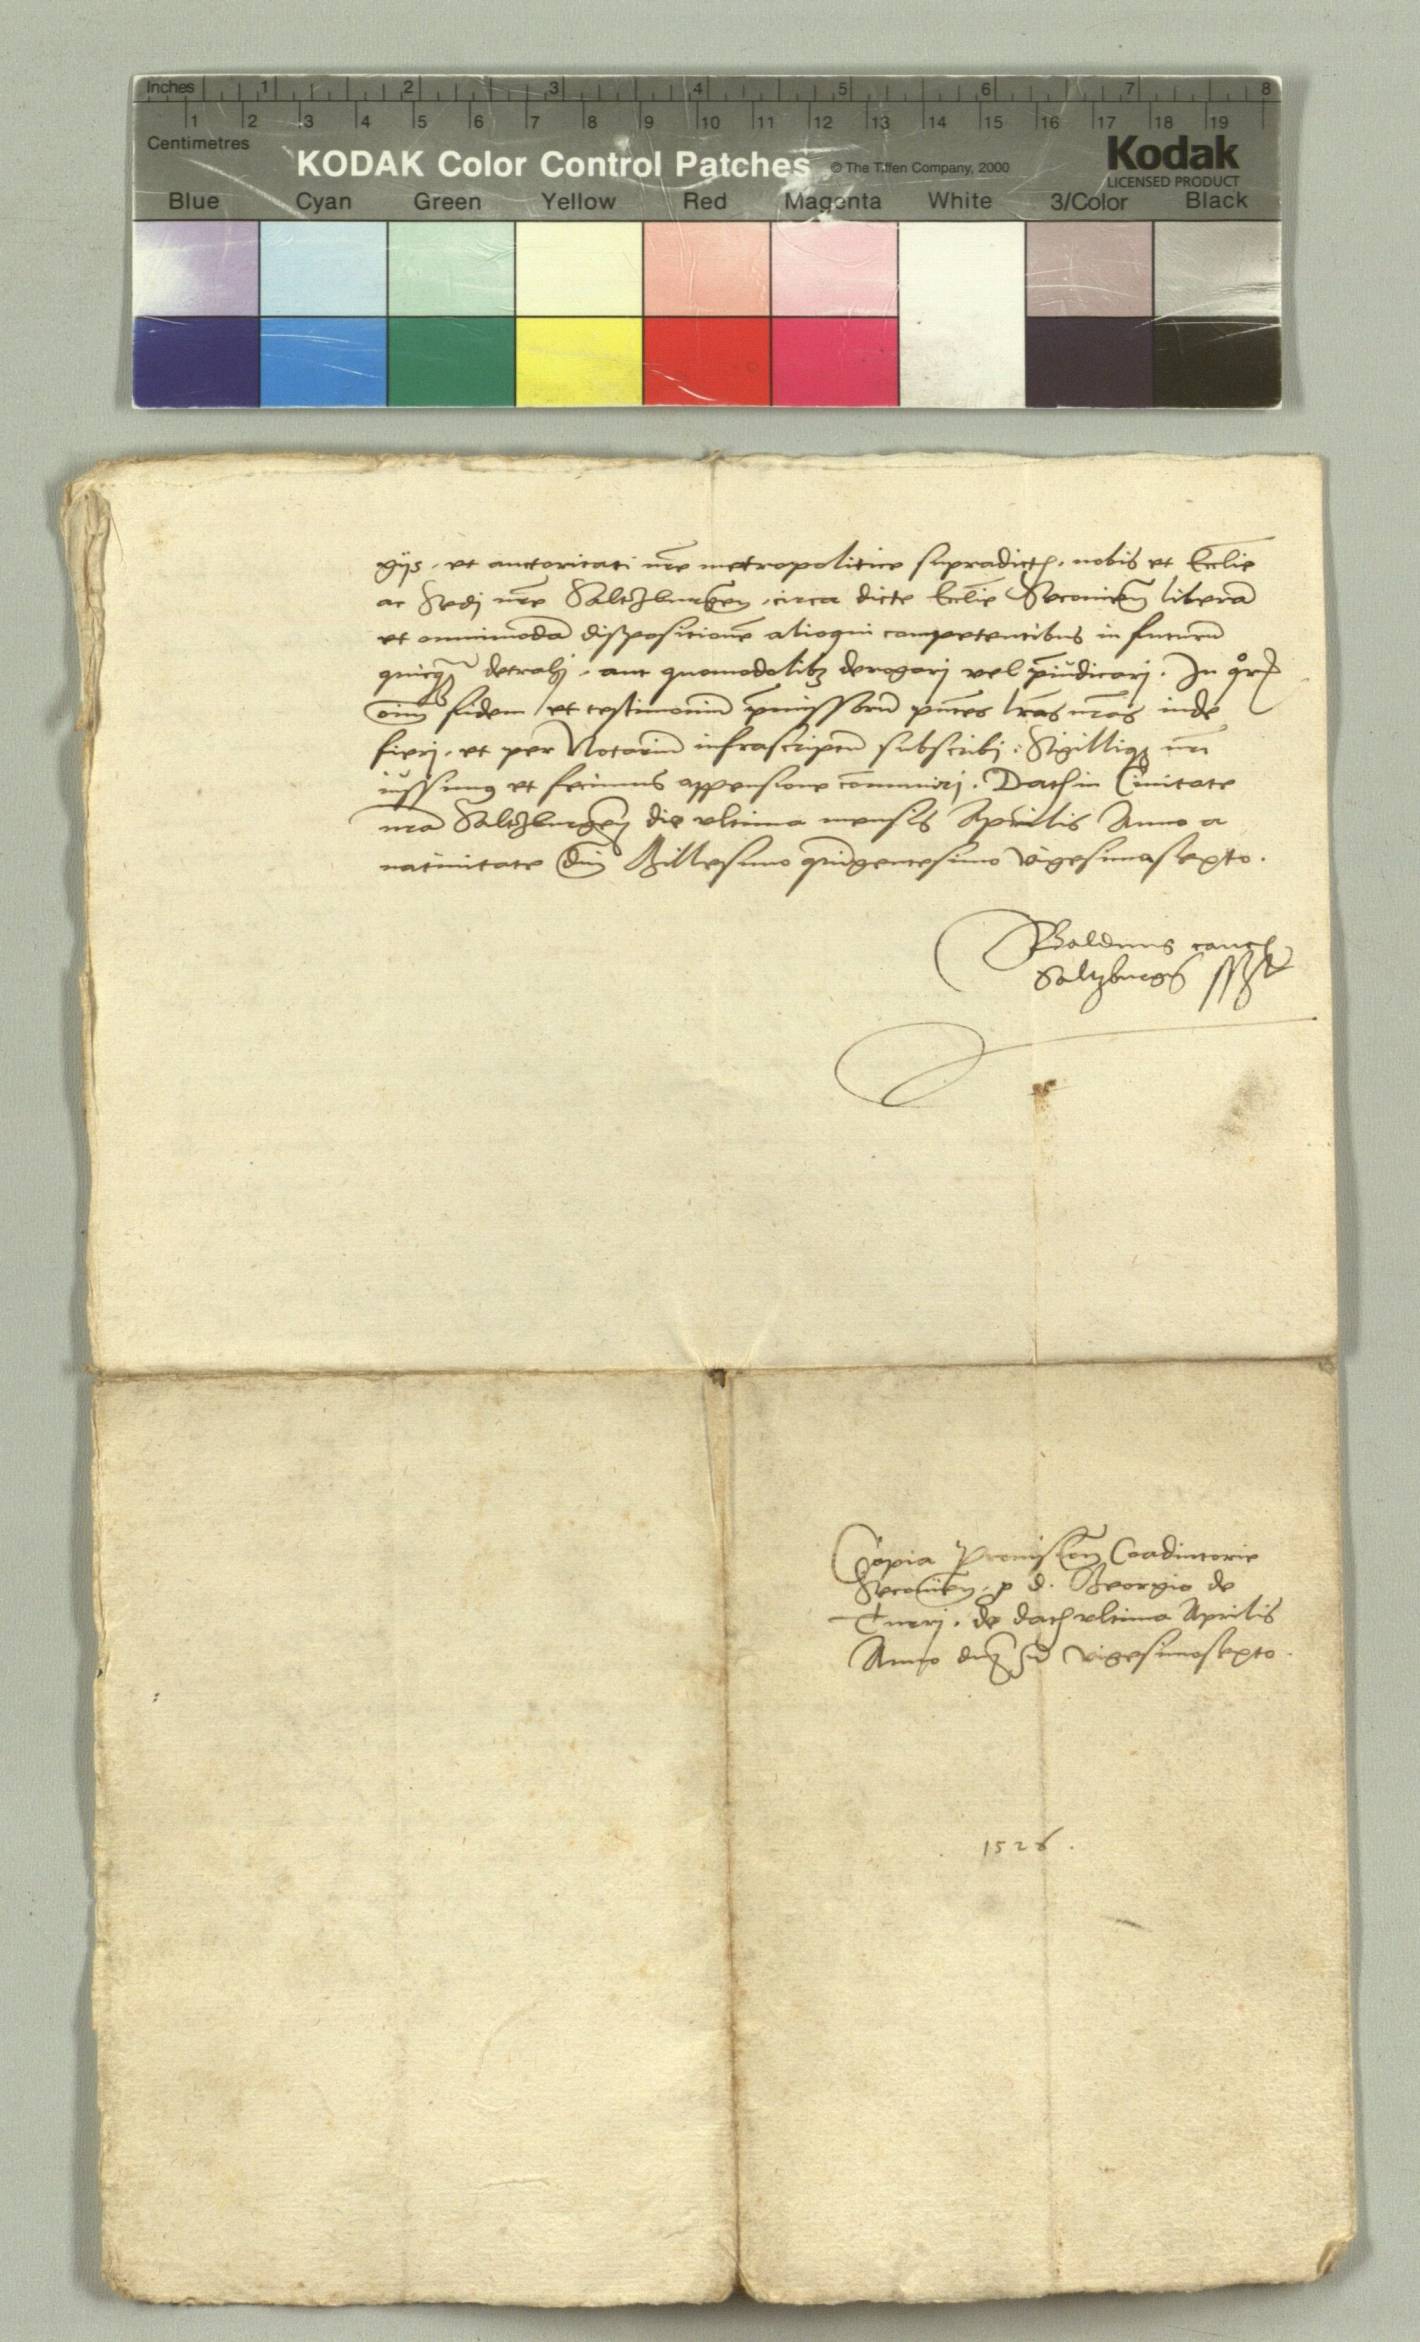 Inches 1 2 3 4 5 6 7 8
1 2 3 4 5 6 7 8 9 10 11 12 13 14 15 16 17 18 19
Centimetres
KODAK Color Control Patches © The Tiffen Company, 2000 Kodak
LICENSED PRODUCT
Blue Cyan Green Yellow Red Magenta White 3/Color Black
gijs. et auctoritati nr̄e metropolitice supradict. nobis et Eccl̄ie
ac Sedj nr̄e Saltzburgen̄. circa dicte Eccl̄ie Seccovien̄ liberā
et omnimodā dispositionē alioqui competentibus in futurū
quicq̄ detrahj. aut quomodolibꝫ derogarj vel p̄iudicarj. In quorꝝ
oīm fidem et testimoniū p̄missorū pn̄tes lr̄as nr̄as inde
fierj. et per Notariū infrascriptū subscribj: Sigilliqꝫ nr̄i
iussimꝰ et fecimus appensione cōmunirj. Dat in Ciuitate
nr̄a Saltzburgen̄ die vltima mensis Aprilis Anno a
natiuitate dn̄i Millesimo quīgentesimo vigesimosexto.
Baldnus canc
Saltzburgen̄ sszt
Copia Prouision̄ Coadiutorie
Seccovien̄. p d. Georgio de
Tuerj. de dat vltima Aprilis
Anno dn̄j vigesimosexto.
1526.